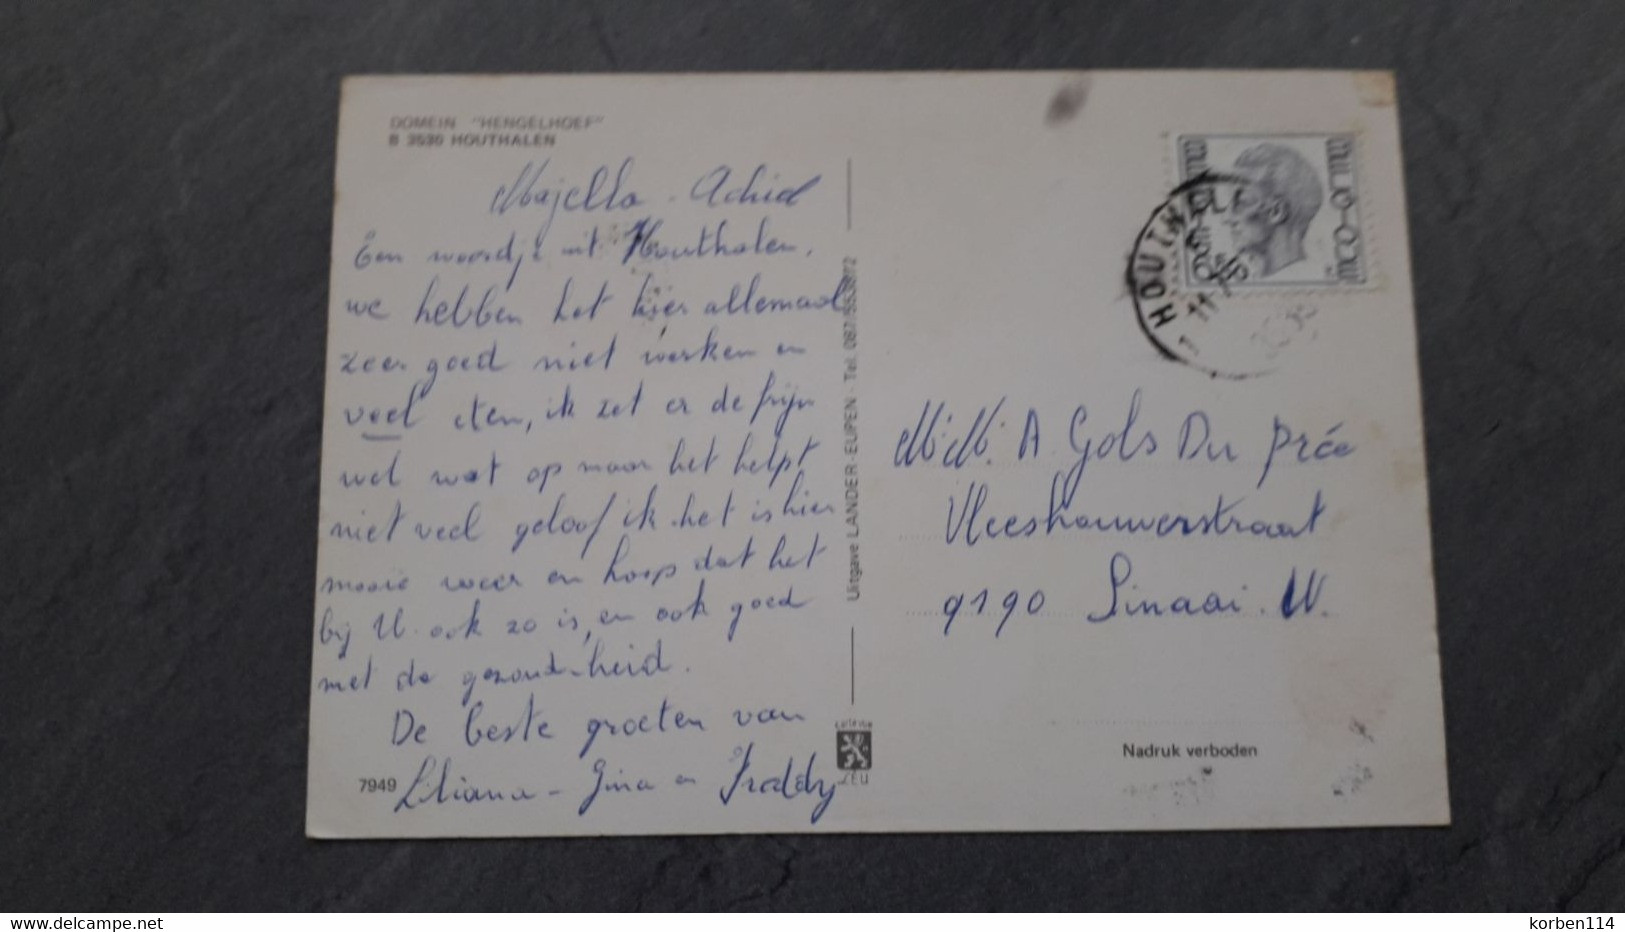 DOMEIN "HENGELHOEF"
B 3530 HOUTHALEN
Majella - Achiel
Een woordje uit Houthalen,
we hebben het hier allemaal
zeer goed niet werken en
veel eten, ik zet er de frijn
wel wat op maar het helpt
niet veel geloof ik. het is hier
mooie weer en hoop dat het
bij U ook zo is, en ook goed
met de gezondheid.
De beste groeten van
Liliana - Gina en Freddy
7949
Uitgave LANDER-EUPEN - Tel. 087/553872
LEU
HOUTHALEN
M.M. A Gols Du Prée
Vleeshouwerstraat
9190 Sinaai. W.
Nadruk verboden
delcampe.net
korben114